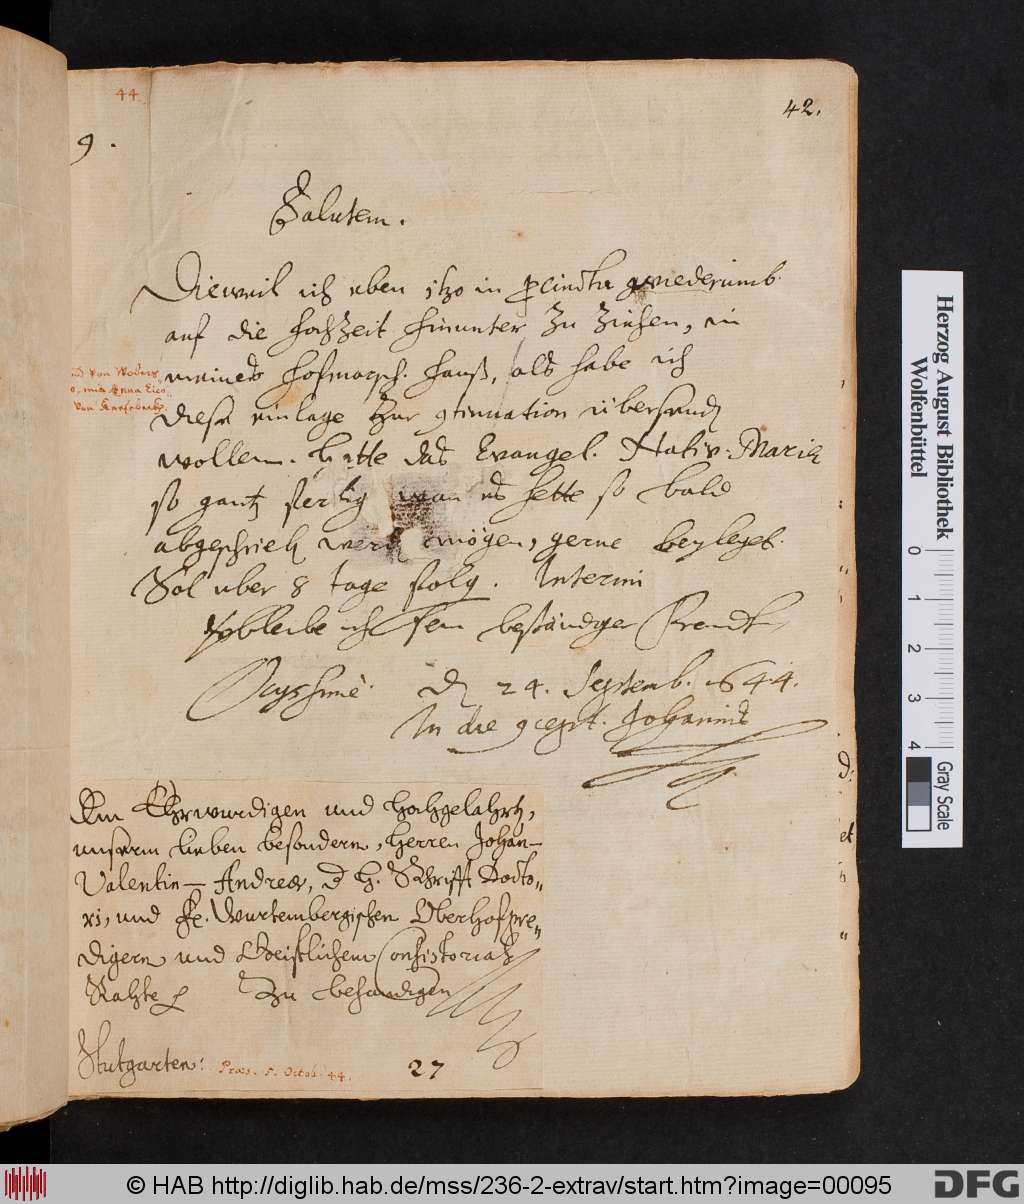 44
42.
9.
Salutem.
Dieweil ich eben itzo in procinctu wiederumb
auf die hochzeit hinunter zu ziehen, in
meines hofmarsch. hauß, als habe ich
d von
mia Anna
von
diese einlage zur continuation übersenden
wollen. hette das Evangel. Nativ: Mariæ
so gantz fertig wan es hette so bald
abgeschrieben werden mögen, gerne beygelegt.
Sol uber 8 tage folgen. Interim
verbleibe ich sein bestendiger freundt
den 24. Septemb. 1644.
In die concept. Johannis
Dem Ehrwurdigen und hochgelahrten,
unserm lieben besondern, herren Johan-
Valentin Andreæ, d. H. Schrifft Docto-
ri, und Fe. Wurtembergischen Oberhofpre-
digern und Geistlichem Consistorial
Rahte zu behandigen
Stutgarten:
Præs. 5. Octob. 44.
27
d:
et
Herzog August Bibliothek
Wolfenbüttel
0 1 2 3 4
Gray Scale
© HAB http://diglib.hab.de/mss/236-2-extrav/start.htm?image=00095
DFG